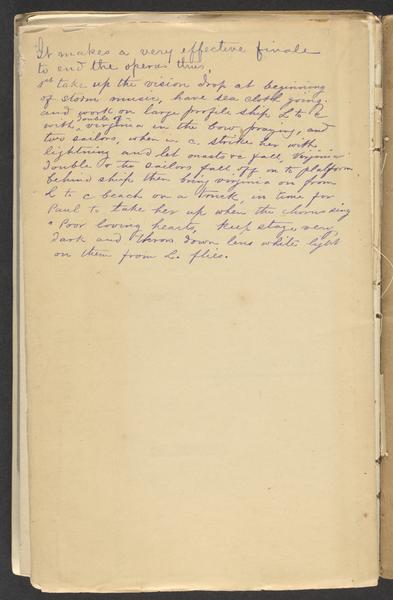 It makes a very effective finale
to end the operas thus,
1st take up the vision drop at beginning
of storm music, have sea cloth going.
and work on large profile ship L to C
with double of Virginia in the bow praying, and
two sailors, when in C. strike her with
lightning and let masts fall, Virginia
double & two sailors fall off on to platform
behind ship then bring Virginia on from
L to C beach on a truck, in time for
Paul to take her up when the chorus sing
"Poor loving hearts, keep stage very
dark and throw down lens white light
on them from L. flies.